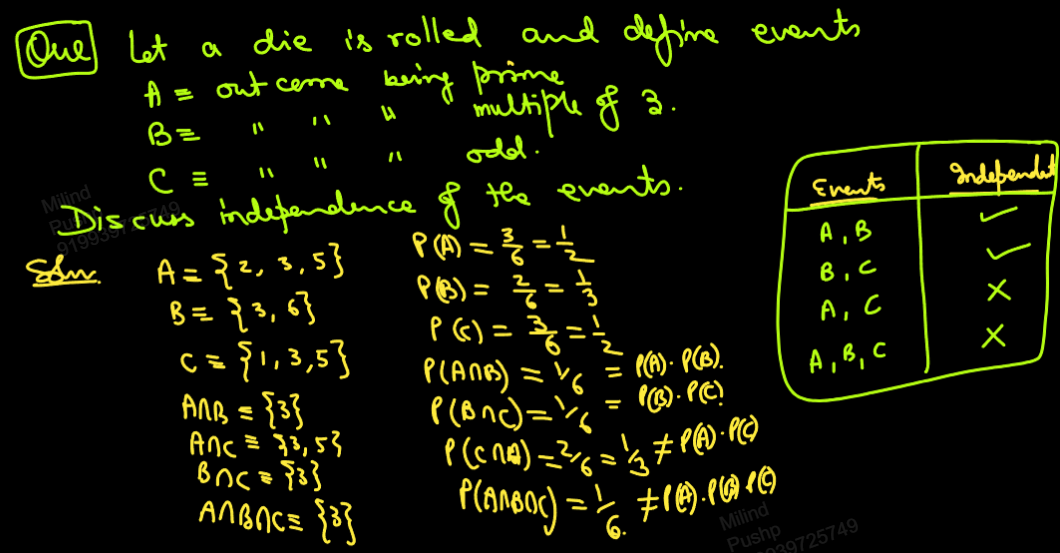 Que Let a die is rolled and define events
A ≡ outcome being prime
B ≡ " " " multiple of 3.
C ≡ " " " odd.
Discuss independence of the events.
Soln. A = {2, 3, 5} P(A) = 3/6 = 1/2
B = {3, 6} P(B) = 2/6 = 1/3
C = {1, 3, 5} P(C) = 3/6 = 1/2
P(A∩B) = 1/6 = P(A)·P(B).
A∩B ≡ {3} P(B∩C) = 1/6 = P(B)·P(C)
A∩C ≡ {3, 5} P(C∩A) = 2/6 = 1/3 ≠ P(A)·P(C)
B∩C ≡ {3}
A∩B∩C ≡ {3} P(A∩B∩C) = 1/6. ≠ P(A)·P(B)·P(C)
Events Independent
A, B ✓
B, C ✓
A, C ×
A, B, C ×
Milind
Pushp
919939725749
Milind
Pushp
39725749